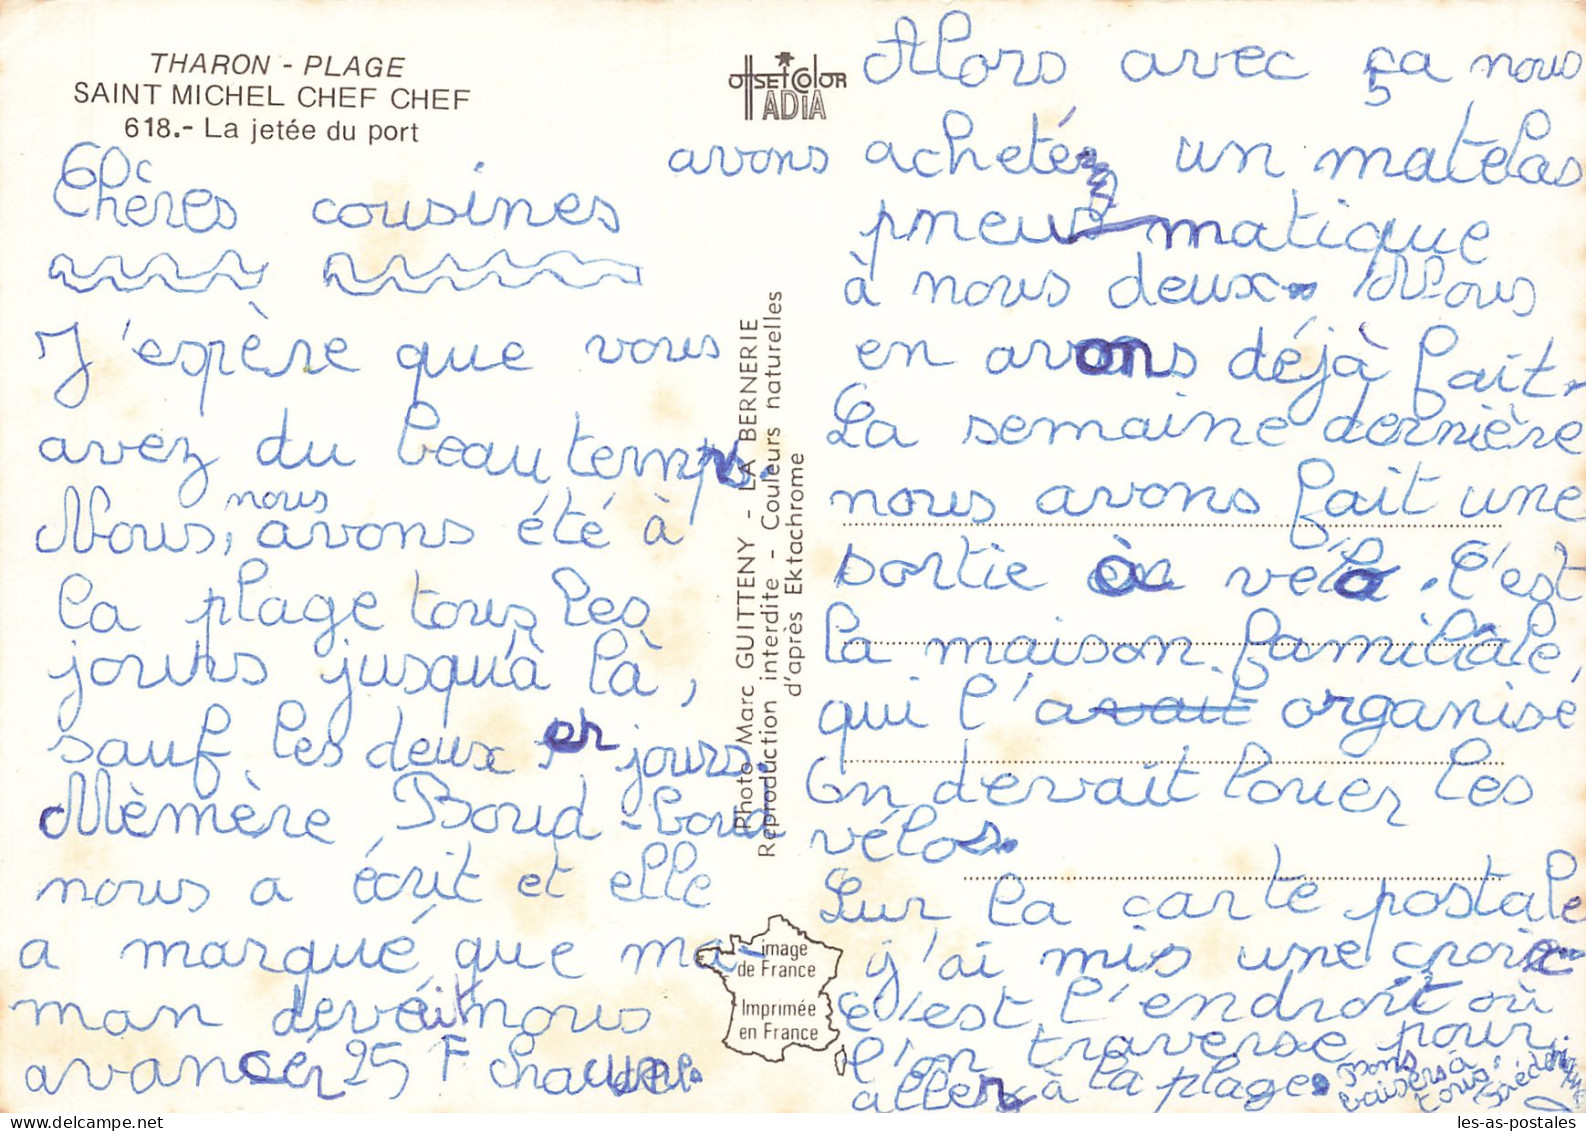 THARON - PLAGE
SAINT MICHEL CHEF CHEF
618.- La jetée du port
Chères cousines
J'espère que vous
avez du beau temps.
Nous, nous avons été à
la plage tous les
jours jusqu'à là,
sauf les deux er jours.
Mèmère Boud-boud
nous a écrit et elle
a marqué que ma-
man devait nous
avancer 25 F chacune.
OffSEt COlOR
ADIA
Photo Marc GUITTENY - LA BERNERIE
Reproduction interdite - Couleurs naturelles
d'après Ektachrome
image
de France
Imprimée
en France
Alors avec ça nous
avons acheté un matelas
pneumatique
à nous deux. Nous
en avons déjà fait.
La semaine dernière
nous avons fait une
sortie à vélo. C'est
la maison familiale,
qui l'avait organisé
On devait louer les
vélos.
Sur la carte postale
j'ai mis une croix
c'est l'endroit où
l'on traverse pour
aller à la plage.
bons
baisers à
tous
les-as-postales